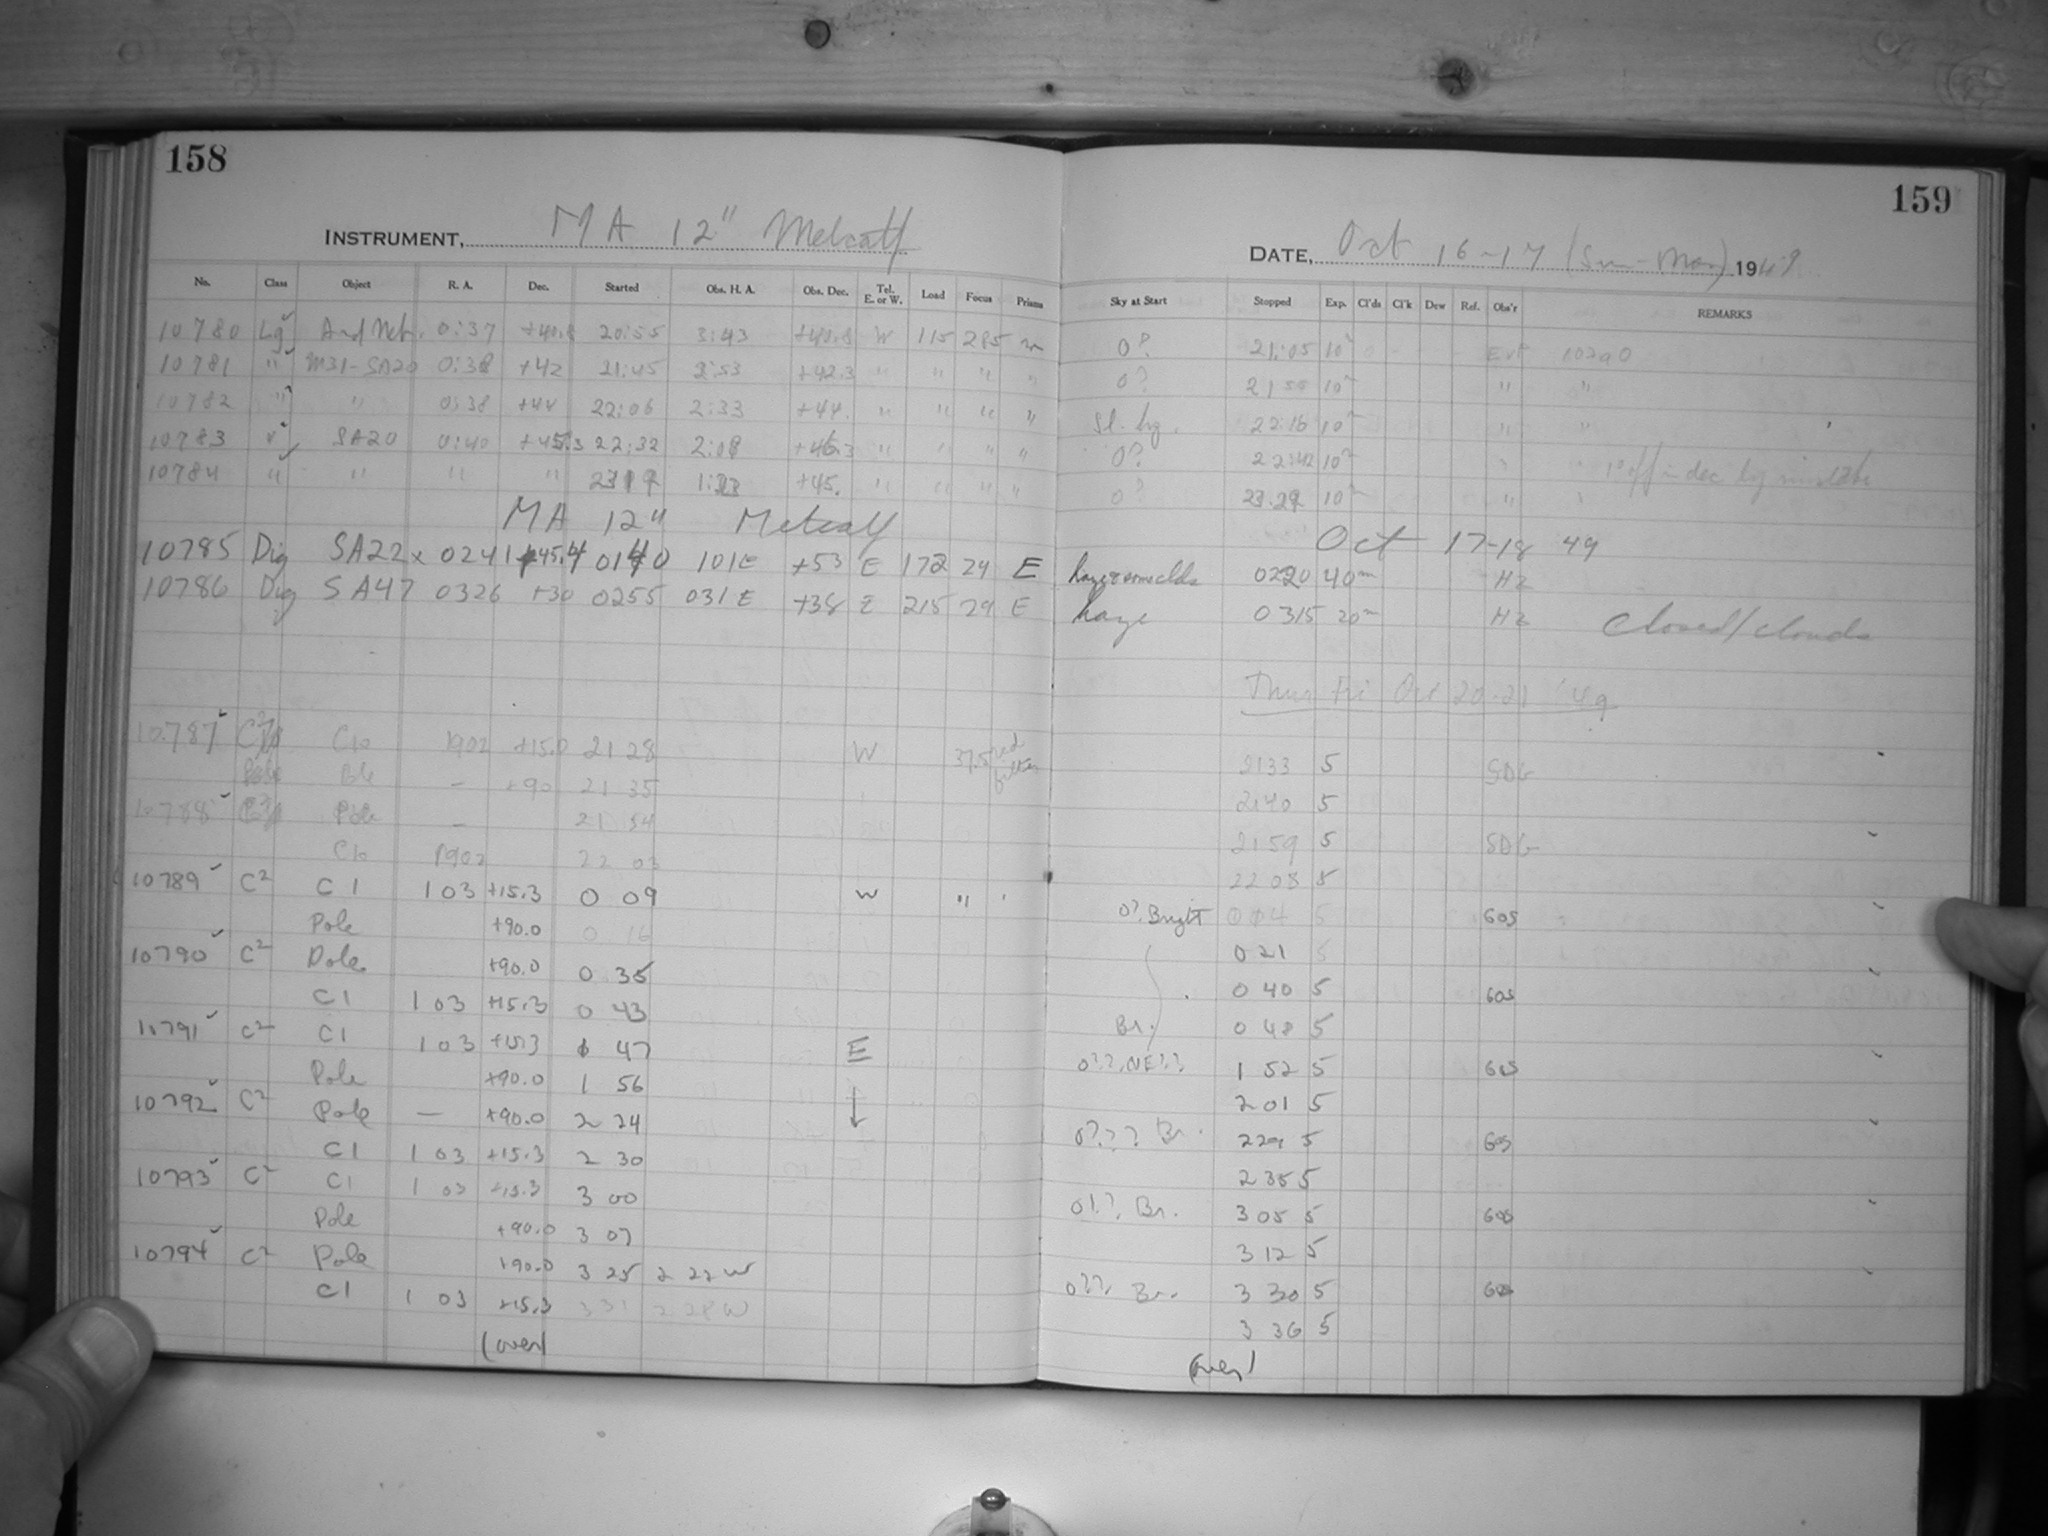 158
INSTRUMENT, MA 12" Metcalf
No. Class Object R. A. Dec. Started Obs. H. A. Obs. Dec. Tel. E. or W. Load Focus Prisms
10780 Lg And Neb. 0:37 +40.8 20:55 3:43 +40.8 W 115 285
10781 " M31-SA20 0:38 +42 21:45 2:53 +42.3 " " " "
10782 " " 0:38 +44 22:06 2:33 +44. " " " "
10783 SA20 0:40 +45.3 22:32 2:08 +46.3 " " " "
10784 " " " " +45. " " " "
MA 12" Metcalf
10785 Dig SA22 0241 +45.4 0140 101E +53 E 172 29 E
10786 Dig SA47 0326 +30 0255 031E +38 E 215 29 E
10787 1902 +15.0 21 28 W 37.5 red filter
— +90 21 35
10788 Pole — 21 54
1902 22 03
10789 C2 C1 1 03 +15.3 0 09 W "
Pole +90.0 0 16
10790 C2 Pole +90.0 0 35
C1 1 03 +15.3 0 43
10791 C2 C1 1 03 +15.3 1 47 E
Pole +90.0 1 56
10792 C2 Pole — +90.0 2 24
C1 1 03 +15.3 2 30
10793 C2 C1 1 03 +15.3 3 00
Pole +90.0 3 07
10794 C2 Pole +90.0 3 25 2 22 W
C1 1 03 +15.3 3 31 2 28 W
(over)
159
DATE, Oct 16-17 (Sun-Mon) 1949
Sky at Start Stopped Exp. Cl'ds Cl'k Dew Ref. Obs'r REMARKS
0? 21:05 10m 103aO
0? 21 55 10m " "
Sl. hzy. 22:16 10m " "
0? 22:42 10m 1° off in dec by mistake
0? 10m "
Oct 17-18 49
haze & some clds 0220 40m HZ
haze 0315 20m HZ Closed/clouds
Thurs Fri Oct 20-21 '49
2133 5 SDG
2140 5
2159 5 SDG
2208 5
0? Bright 0 14 5 GOS
0 21 5
0 40 5 GOS
Br. 0 48 5
0??, NE?? 1 52 5 GOS
2 01 5
0??? Br. 2 29 5 GOS
2 35 5
0?? Br. 3 05 5 GOS
3 12 5
0??, Br. 3 30 5 GOS
3 36 5
(over)